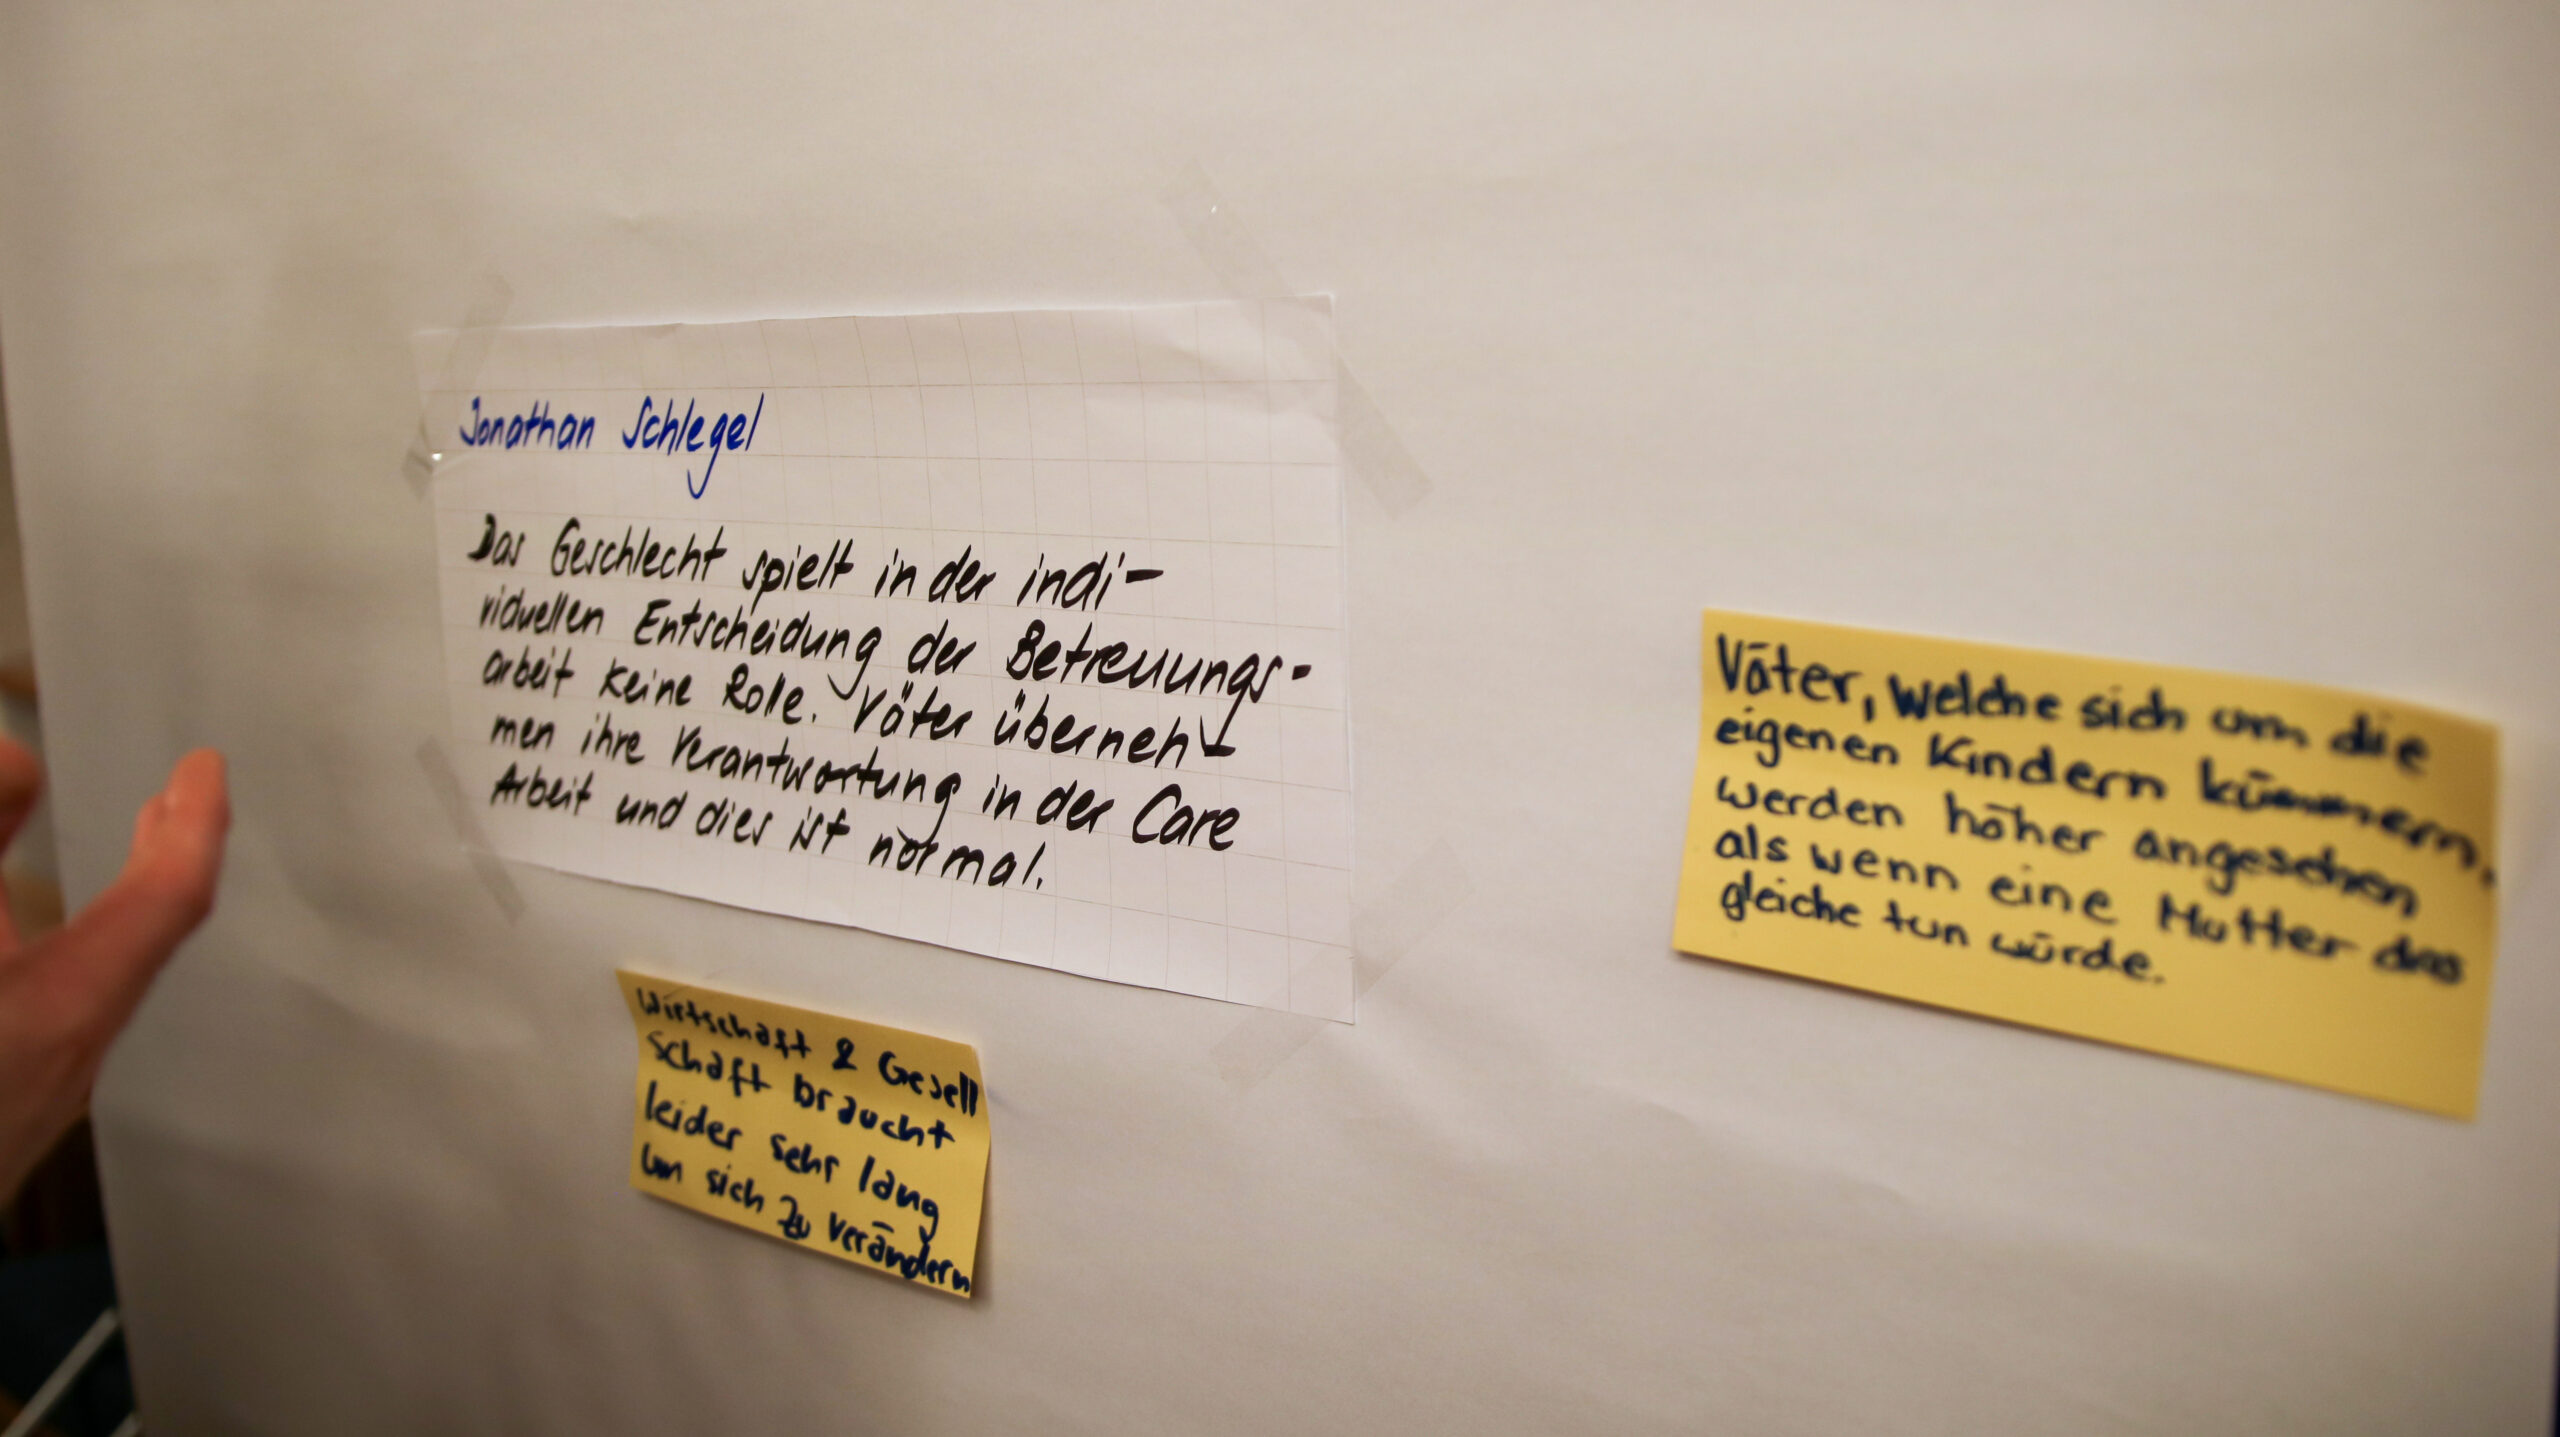 Jonathan Schlegel
Das Geschlecht spielt in der indi-
viduellen Entscheidung der Betreuungs-
arbeit keine Rolle. Väter überneh-
men ihre Verantwortung in der Care
Arbeit und dies ist normal.
Wirtschaft & Gesell
schaft braucht
leider sehr lang
um sich zu verändern
Väter, welche sich um die
eigenen Kindern kümmern,
werden höher angesehen
als wenn eine Mutter das
gleiche tun würde.